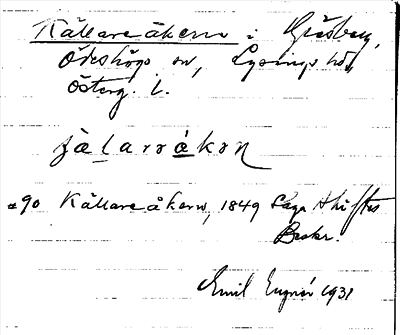 Källareåkern i Gråberg,
Ödeshögs sn, Lysings hd,
Österg. l.
jälarråkɷn
90 Källareåkern, 1849 Laga skiftes
Beskr.
Emil 1931